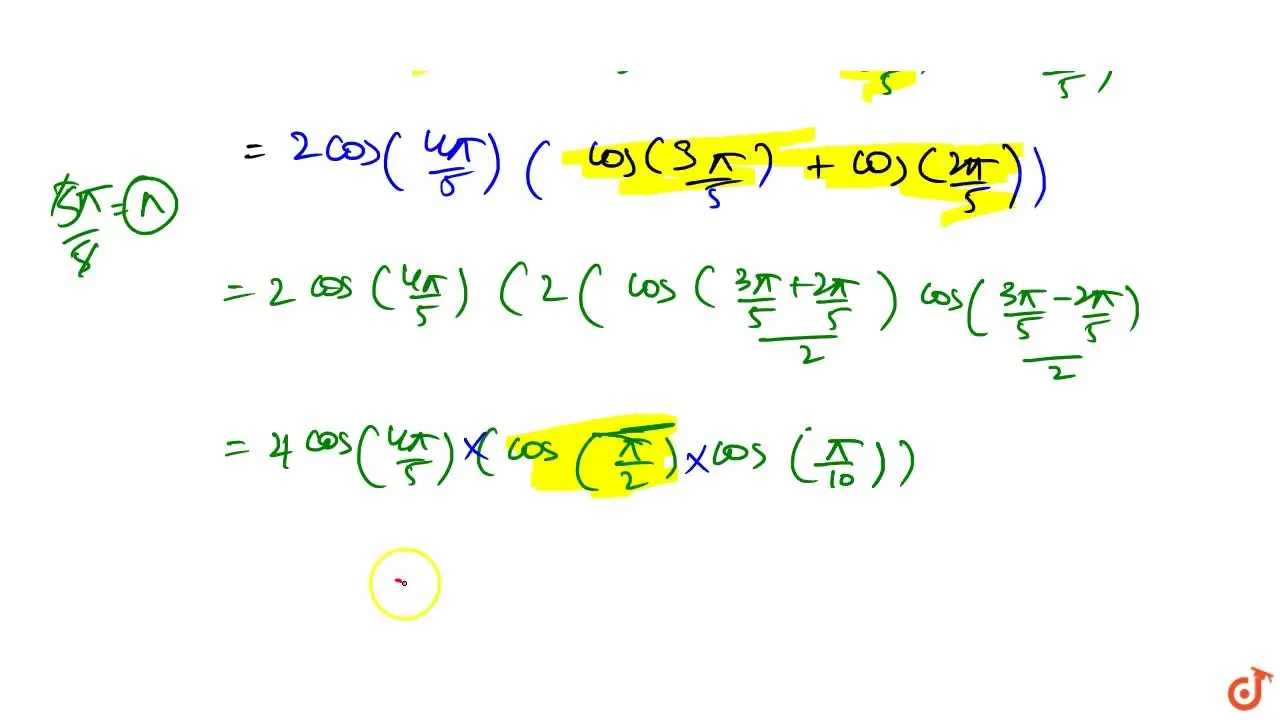 5 5 )
= 2 cos(4π/5) ( cos(3π/5) + cos(2π/5) )
5π/5 = π
= 2 cos (4π/5) ( 2 ( cos ( (3π/5 + 2π/5)/2 ) cos( (3π/5 - 2π/5)/2 )
= 4 cos(4π/5) × ( cos (π/2) × cos (π/10) )